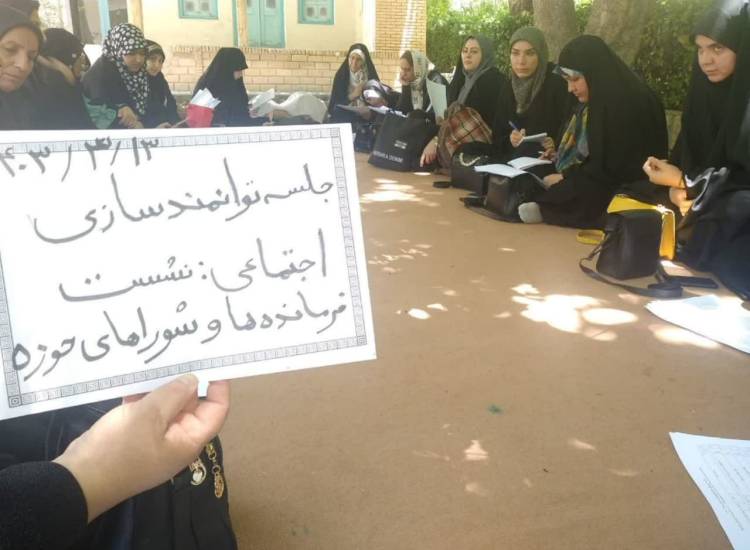 ۴۰۳/۳/۱۳
جلسه توانمندسازی
اجتماعی: نشست
فرمانده‌ها و شوراهای حوزه